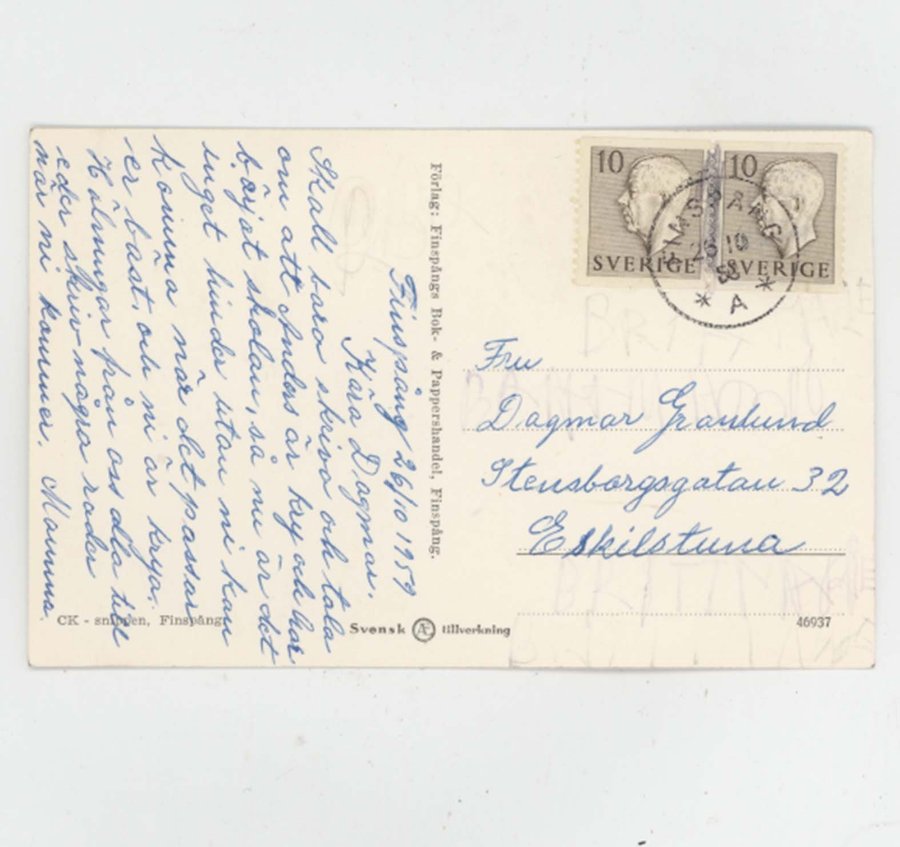 Finspång 26/10 1959
Kära Dagmar.
Skall bara skriva och tala
om att Anders är kry och har
börjat skolan, så nu är det
inget hinder utan ni kan
komma när det passar
er bäst. och ni är krya.
Hälsningar från oss alla till
eder skriv några rader
när ni kommer. Mamma.
Förlag: Finspångs Bok- & Pappershandel, Finspång.
CK - snippen, Finspång
Svensk Æ tillverkning
10 SVERIGE
10 SVERIGE
FINSPÅNG
26 10
A
Fru
Dagmar Granlund
Stensborgsgatan 32
Eskilstuna
46937